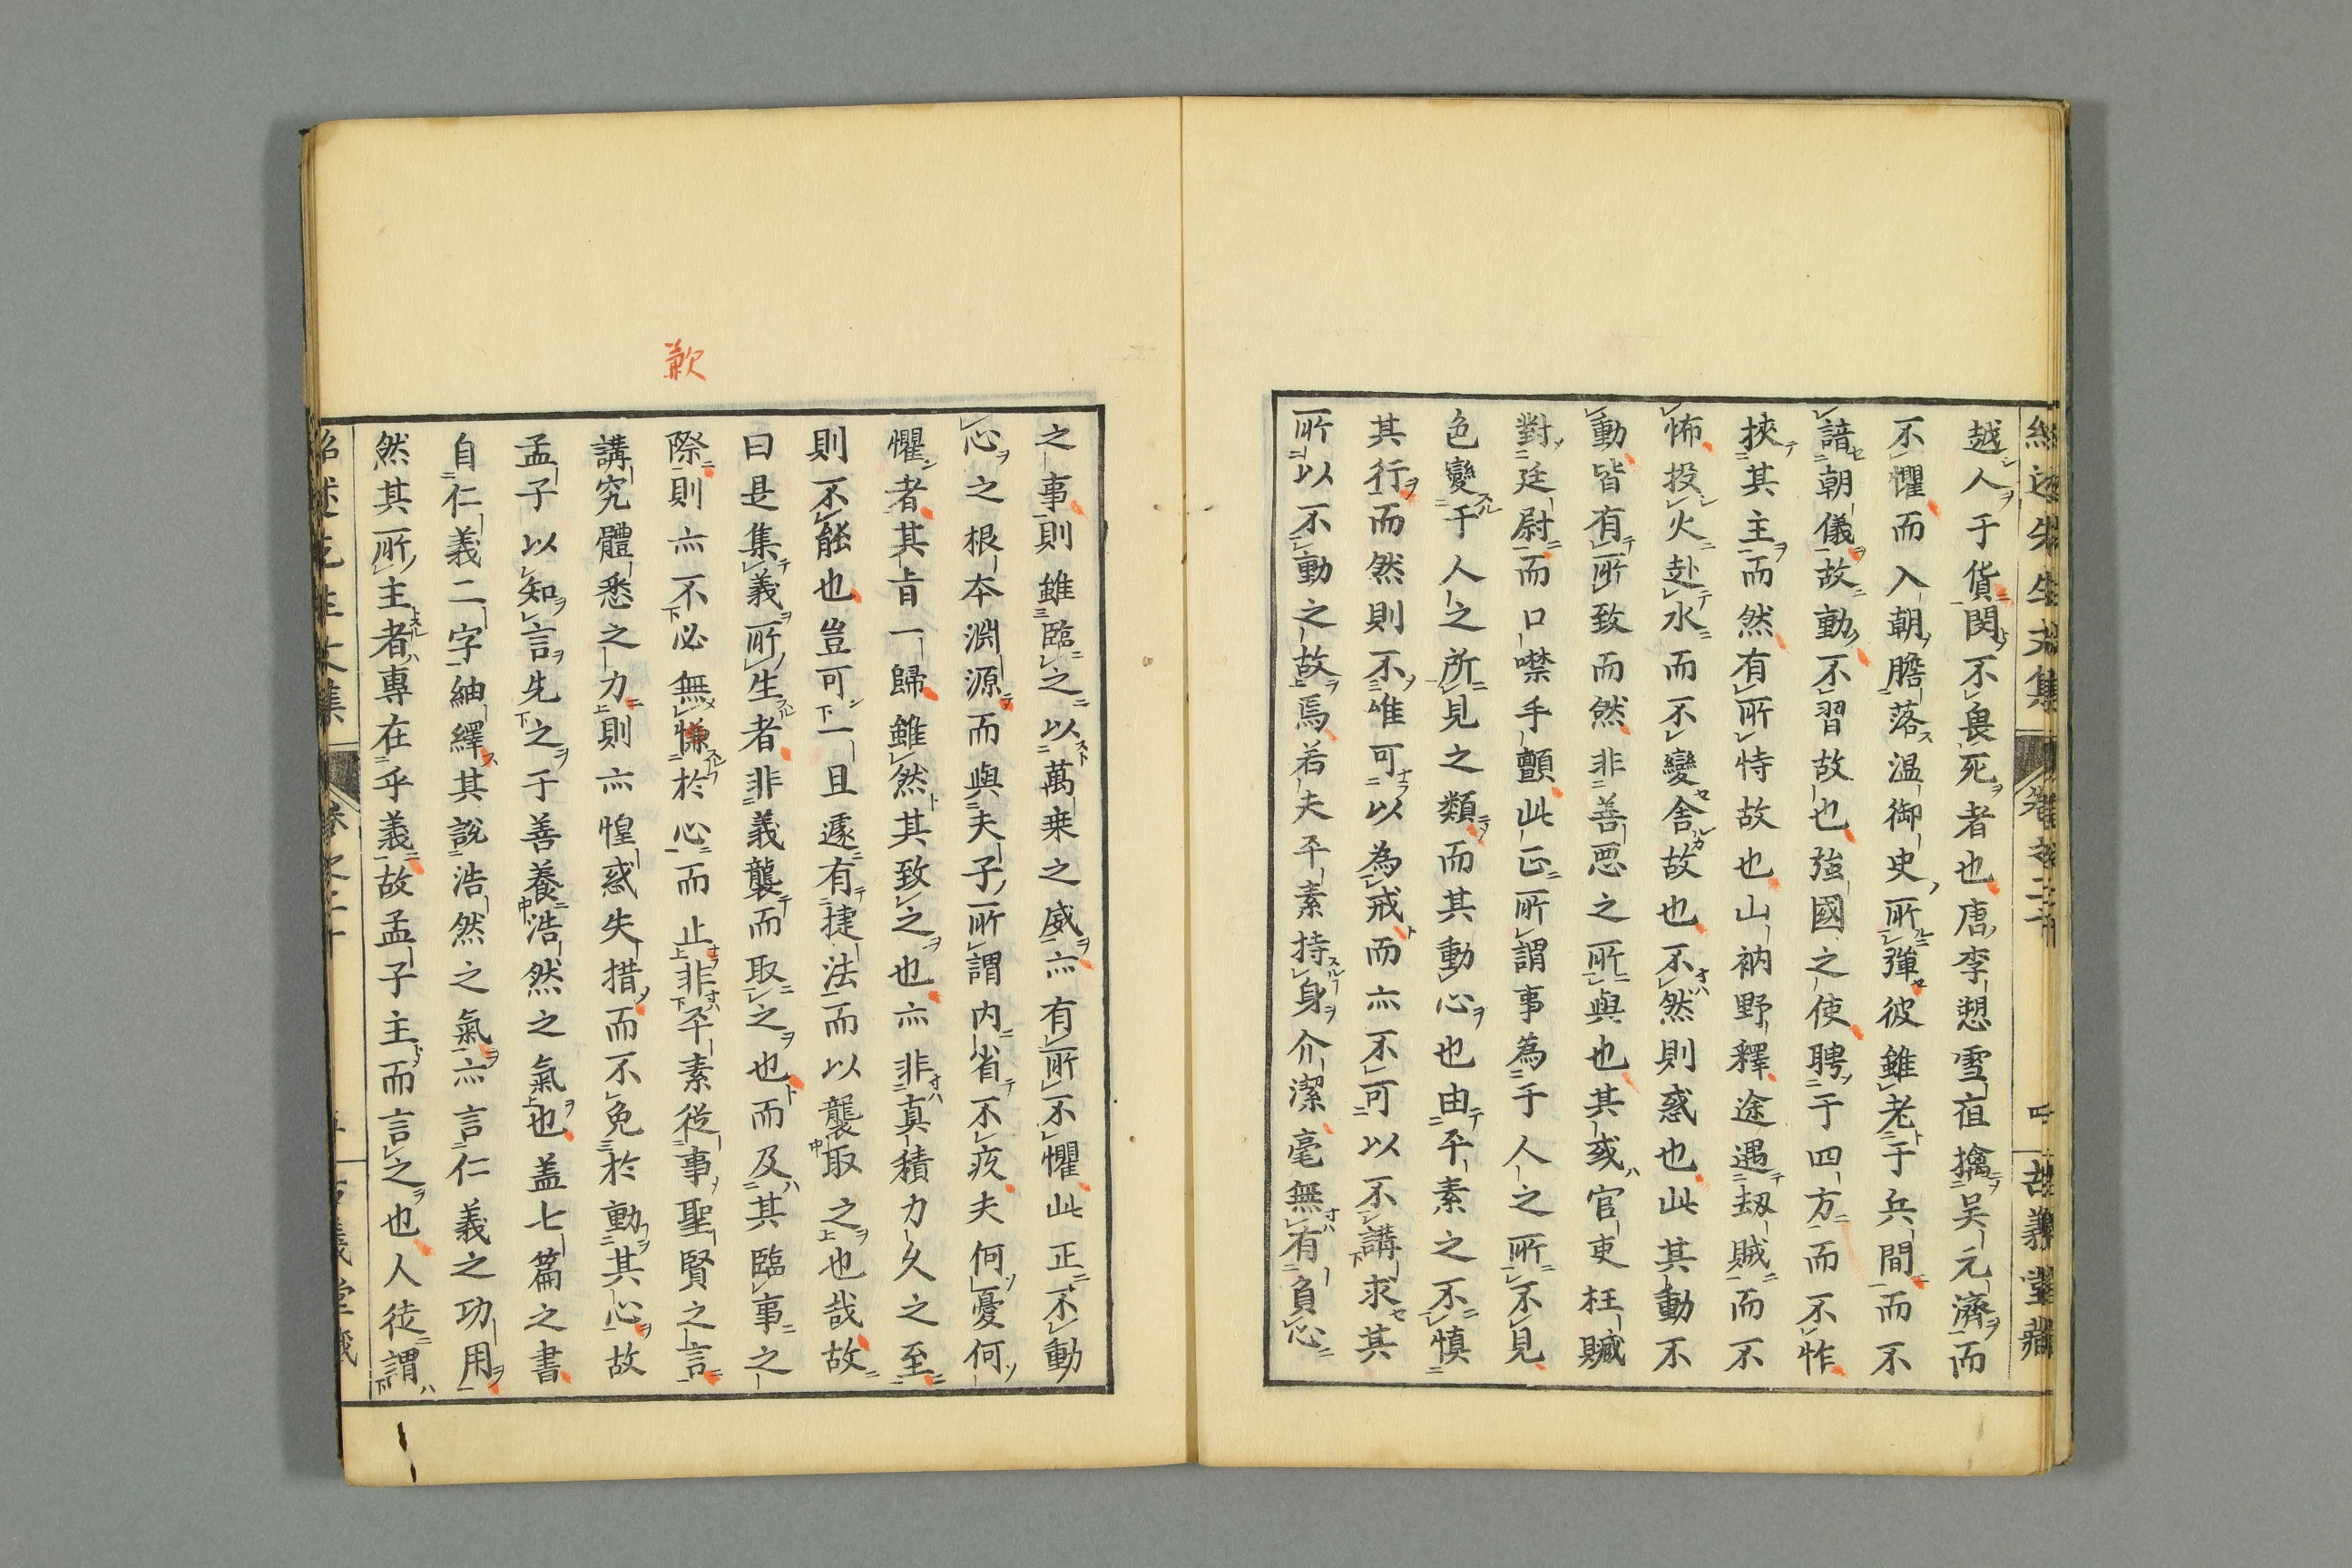 越人于貨閔不畏死者也唐李愬雪夜擒吳元濟而
不懼而入朝膽落溫御史所彈彼雖老于兵間而不
諳朝儀故動不習故也強國之使聘于四方而不怍
挾其主而然有所恃故也山衲野釋途遇劫賊而不
怖投火赴水而不變舍故也不然則惑也此其動不
動皆有所致而然非善悪之所與也其或官吏枉贓
對廷尉而口噤手顫此正所謂事為于人之所不見
色變于人之所見之類而其動心也由平素之不慎
其行而然則不唯可以為戒而亦不可以不講求其
所以不動之故焉若夫平素持身介潔毫無有負心
歉
之事則雖臨之以萬乗之威亦有所不懼此正不動
心之根本淵源而與夫子所謂内省不疚夫何憂何
懼者其旨一歸雖然其致之也亦非真積力久之至
則不能也豈可一且遽有捷法而以襲取之也哉故
曰是集義所生者非義襲而取之也而及其臨事之
際則亦不必無慊於心而止非平素從事聖賢之言
講究體悉之力則亦惶惑失措而不免於動其心故
孟子以知言先之于善養浩然之氣也盖七篇之書
自仁義二字紬繹其說浩然之氣亦言仁義之功用
然其所主者專在乎義故孟子主而言之也人徒謂